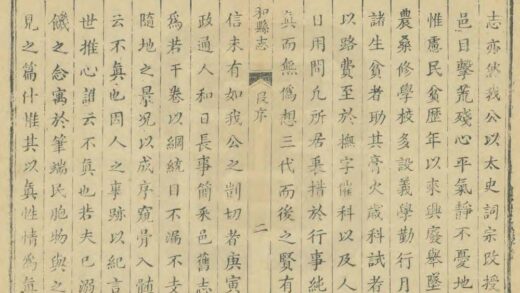 志亦然我公以太史詞宗改授
邑目擊荒殘心平氣靜不憂地
惟慮民貧歷年以來興廢舉墜
農桑修學校多設義學勤行月
諸生貧者助其膏火歲科試者
以路費至於撫字催科以及人
日用間凡所居裏措於行事純
眞而無僞想三代而後之賢有
和縣志
序
二
信未有如我公之剴切者庚寅
政通人和日長事簡乘邑舊志
爲若干卷以綱統目不漏不支
隨地之景况以成序窺骨入髓
云不眞也因人之事跡以紀言
世推心誼云不眞也若夫已溺
饑之念寓於筆端民胞物與之
見之篇什惟其以眞性情爲眞